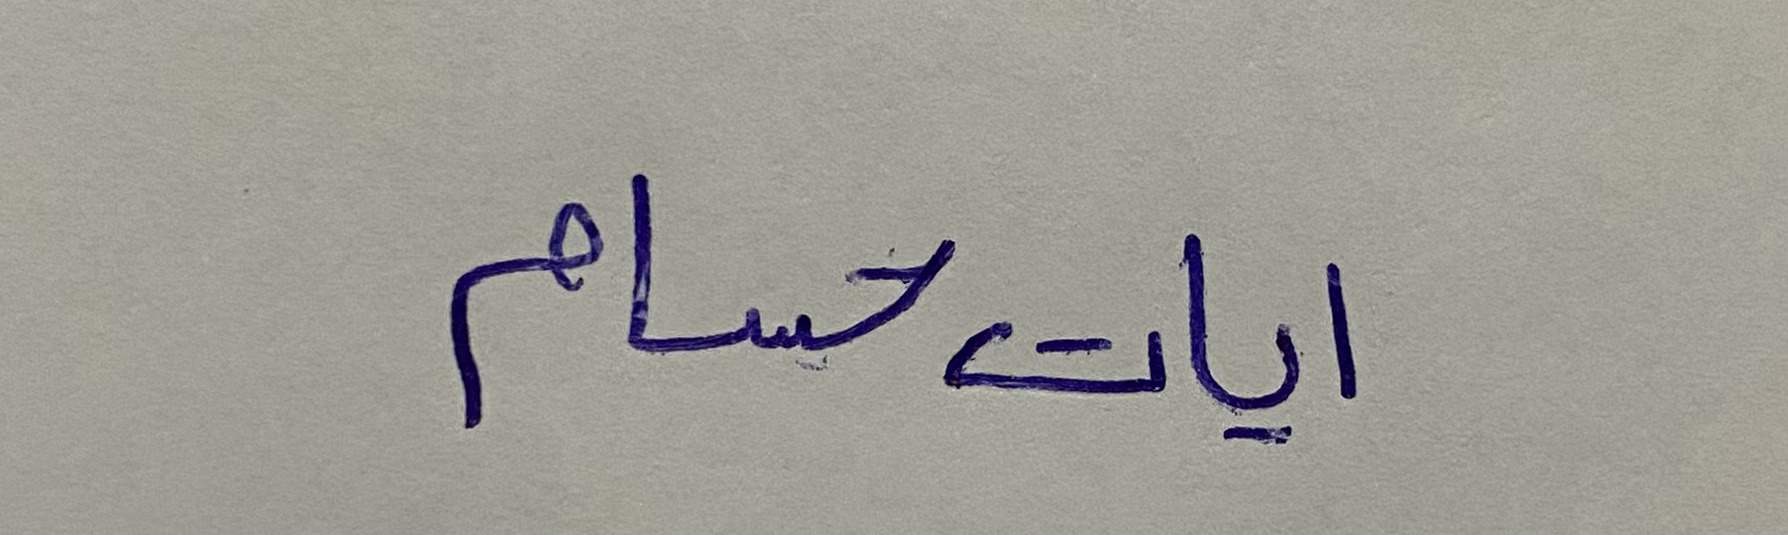 ايات حسام